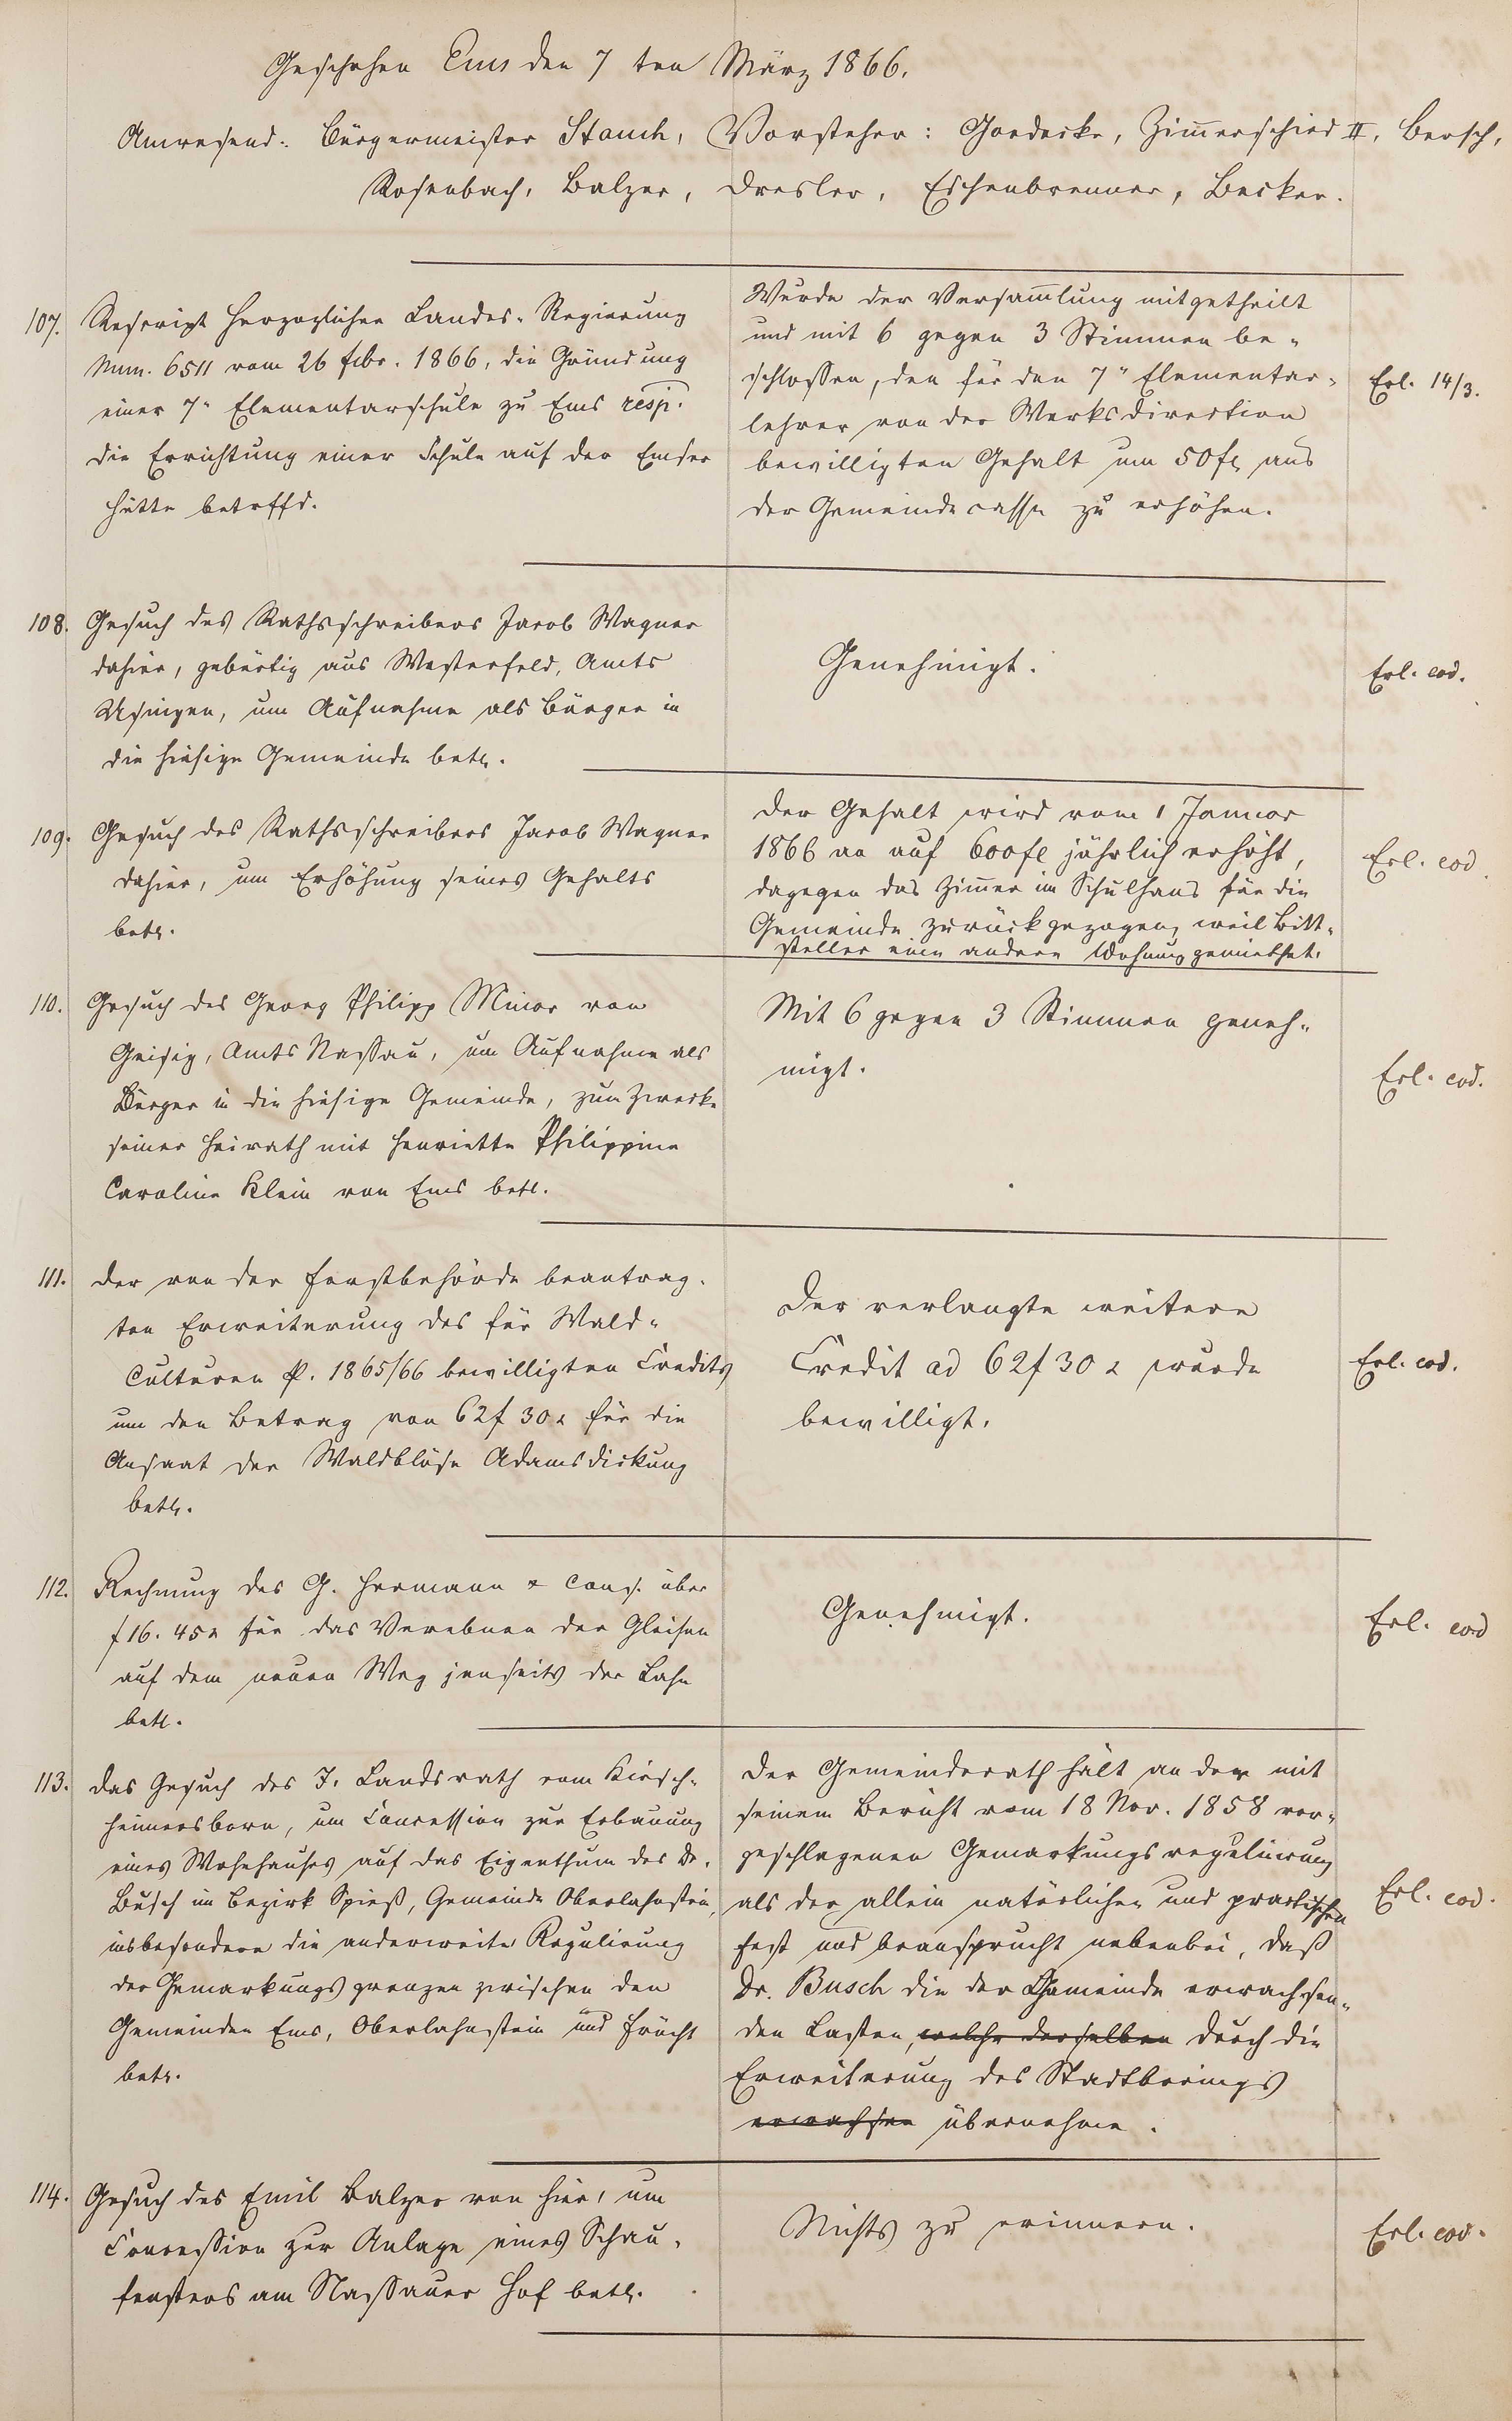 Geschehen Ems den 7 ten März 1866.
Anwesend: Bürgermeister Stauch, Vorsteher: Goedecke, Zim̅erschied II, Bersch,
Rosenbach, Balzer, Dresler, Eschenbrenner, Becker.
107. Rescript Herzoglicher Landes-Regierung
Num. 6511 vom 26 Febr. 1866, die Gründung
einer 7n Elementarschule zu Ems resp.
die Errichtung einer Schule auf der Emser
Hütte betreffd.
Wurde der Versam̅lung mitgetheilt
und mit 6 gegen 3 Stimmen be-
schlossen, den für den 7n Elementar-
lehrer von der Werksdirection
bewilligten Gehalt um 50 fl aus
der Gemeindecasse zu erhöhen.
Erl. 14/3.
108. Gesuch des Rathsschreibers Jacob Wagner
dahier, gebürtig aus Westerfeld, Amts
Usingen, um Aufnahme als Bürger in
die hiesige Gemeinde betr.
Genehmigt.
Erl. eod.
109. Gesuch des Rathsschreibers Jacob Wagner
dahier, um Erhöhung seines Gehalts
betr.
Der Gehalt wird vom 1 Januar
1866 an auf 600 fl jährlich erhöht,
dagegen das Zim̅er im Schulhaus für die
Gemeinde zurückgezogen, weil Bitt-
steller eine andere Wohnung gemiethet.
Erl. eod.
110. Gesuch des Georg Philipp Minor von
Geisig, Amts Nassau, um Aufnahme als
Bürger in die hiesige Gemeinde, zum Zwecke
seiner Heirath mit Henriette Philippine
Caroline Klein von Ems betr.
Mit 6 gegen 3 Stimmen geneh-
migt.
Erl. eod.
111. Der von der Forstbehörde beantrag-
ten Erweiterung des für Wald-
Culturen p. 1865/66 bewilligten Credits
um den Betrag von 62 f 30 x für die
Ansaat der Waldblöse Adamsdickung
betr.
Der verlangte weitere
Credit ad 62 f 30 x wurde
bewilligt.
Erl. eod.
112. Rechnung des G. Hermann & Cons. über
f 16. 45 x für das Verebnen der Gleisen
auf dem neuen Weg jenseits der Lahn
betr.
Genehmigt.
Erl. eod
113. Das Gesuch des J. Landsrath vom Kirsch-
heimersborn, um Concession zur Erbauung
eines Wohnhauses auf das Eigenthum des Dr.
Busch im Bezirk Spieß, Gemeinde Oberlahnstein,
insbesondere die anderweite Regulirung
der Gemarkungsgrenzen zwischen den
Gemeinden Ems, Oberlahnstein und Frücht
betr.
Der Gemeinderath hält an der mit
seinem Bericht vom 18 Nov. 1858 vor-
geschlagenen Gemarkungsregulirung
als der allein natürlichen und practischen
fest und beansprucht nebenbei, daß
Dr. Busch die der Gemeinde erwachsen-
den Lasten, welche derselben durch die
Erweiterung des Stadtberings
erwachsen übernehme.
Erl. eod.
114. Gesuch des Emil Balzer von hier, um
Concession zur Anlage eines Schau-
fensters am Nassauer Hof betr.
Nichts zu erinnern.
Erl. eod.